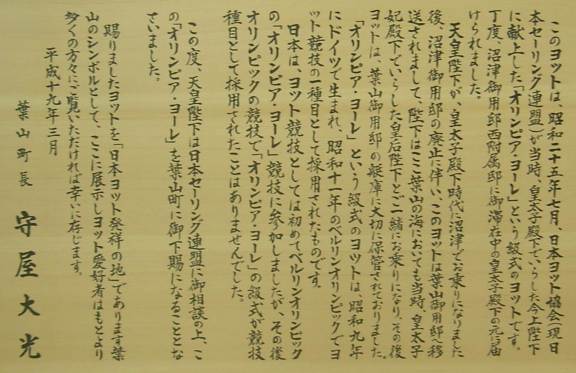 このヨットは、昭和二十五年七月、日本ヨット協会(現日
本セーリング連盟)が当時、皇太子殿下でいらした今上陛下
に献上した「オリンピア・ヨーレ」という級式のヨットです。
丁度、沼津御用邸西附属邸に御滞在中の皇太子殿下の元に届
けられました。
天皇陛下が、皇太子殿下時代に沼津でお乗りになりました
後、沼津御用邸の廃止に伴い、このヨットは葉山御用邸へ移
送されまして、陛下はここ葉山の海においても当時、皇太子
妃殿下でいらした皇后陛下とご一緒にお乗りになり、その後
ヨットは、葉山御用邸の艇庫に大切に保管されておりました
「オリンピア・ヨーレ」という級式のヨットは、昭和九年
にドイツで生まれ、昭和十一年のベルリンオリンピックでヨ
ット競技の一種目として採用されたものです。
日本は、ヨット競技としては初めてベルリンオリンピック
の「オリンピア・ヨーレ」競技に参加しましたが、その後
オリンピックの競技で「オリンピア・ヨーレ」の級式が競技
種目として採用されたことはありませんでした。
この度、天皇陛下は日本セーリング連盟に御相談の上、こ
の「オリンピア・ヨーレ」を葉山町に御下賜になることとな
さいました。
賜りましたヨットを「日本ヨット発祥の地」であります葉
山のシンボルとして、ここに展示しヨット愛好者はもとより
多くの方々にご覧いただければ幸いに存じます。
平成十九年三月
葉山町長 守屋大光